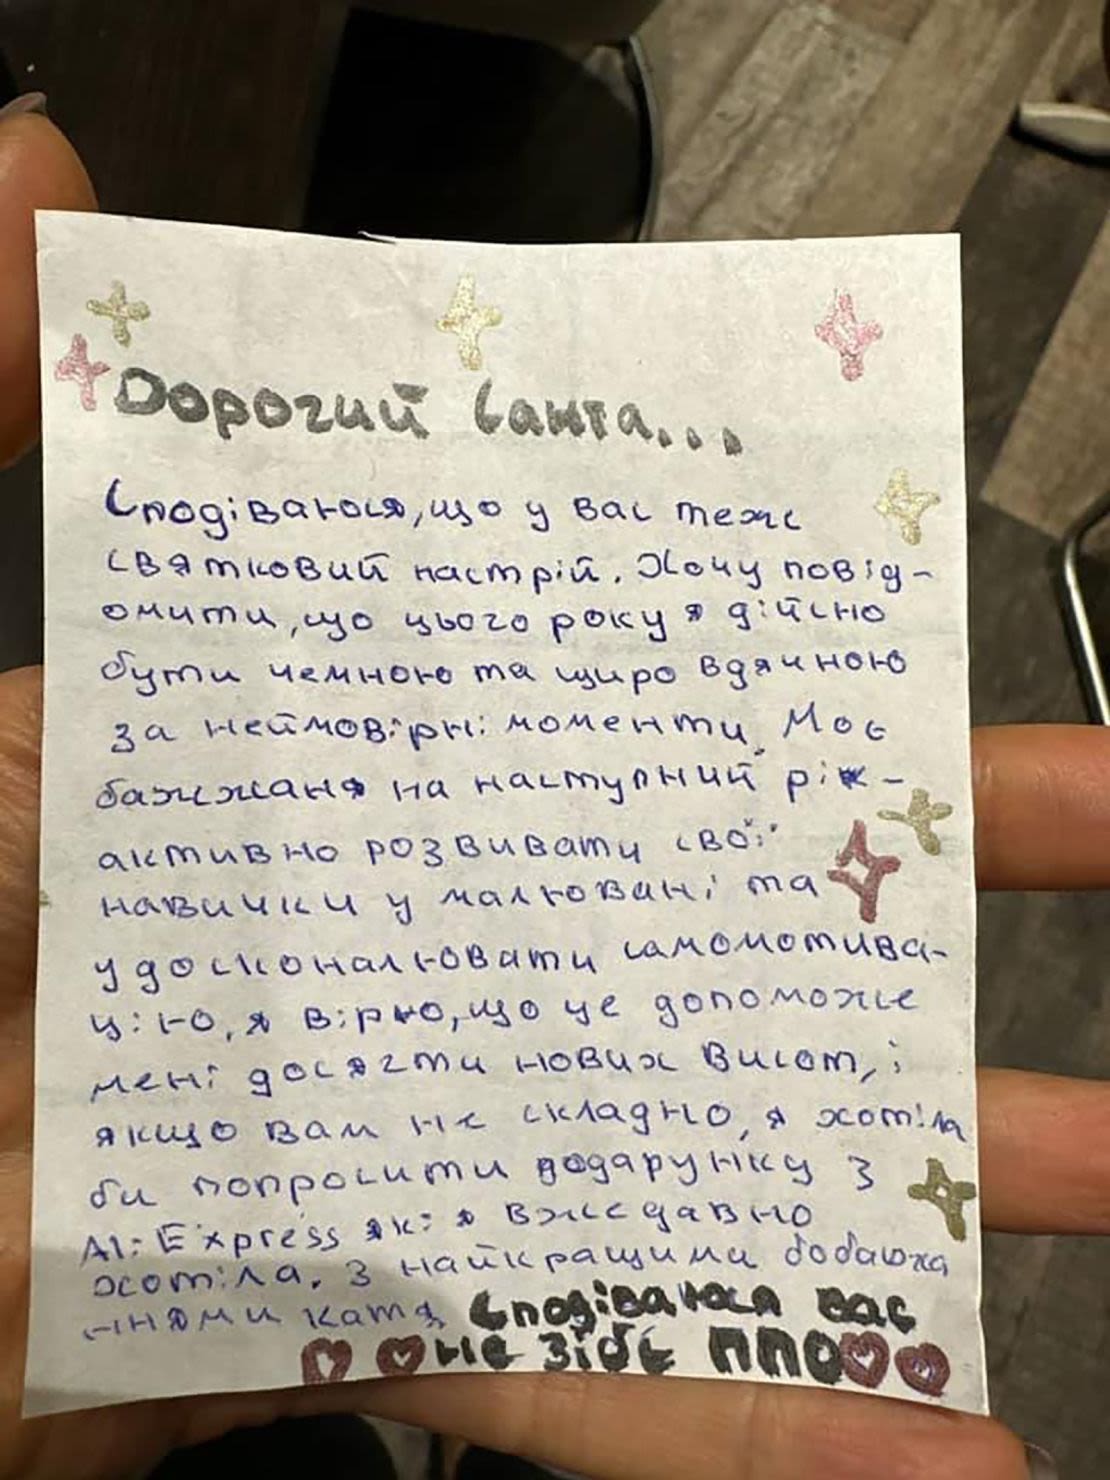 Дорогий Санта...
Сподіваюся, що у вас теж
святковий настрій. Хочу повід-
омити, що цього року я дійсно
бути чемною та щиро вдячною
за неймовірні моменти. Моє
бажжаня на наступний рік -
активно розвивати свої
навички у малювані та
удосконалювати самомотива-
цію, я вірю, що це допоможе
мені досягти нових висот, і
якщо вам не складно, я хотіла
би попросити подарунку з
AliExpress які я вже давно
хотіла. З найкращими бобаюжа
-ннями катя
Сподіваюся вас
не зібє ППО